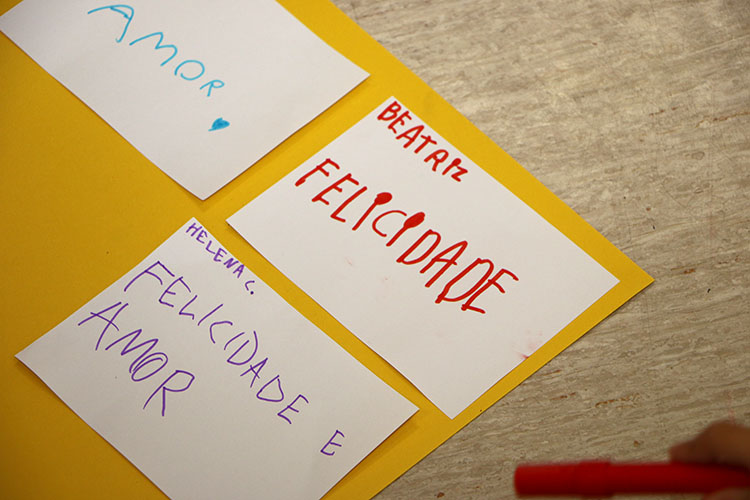 AMOR
BEATRIZ
FELICIDADE
HELENA C.
FELICIDADE E
AMOR